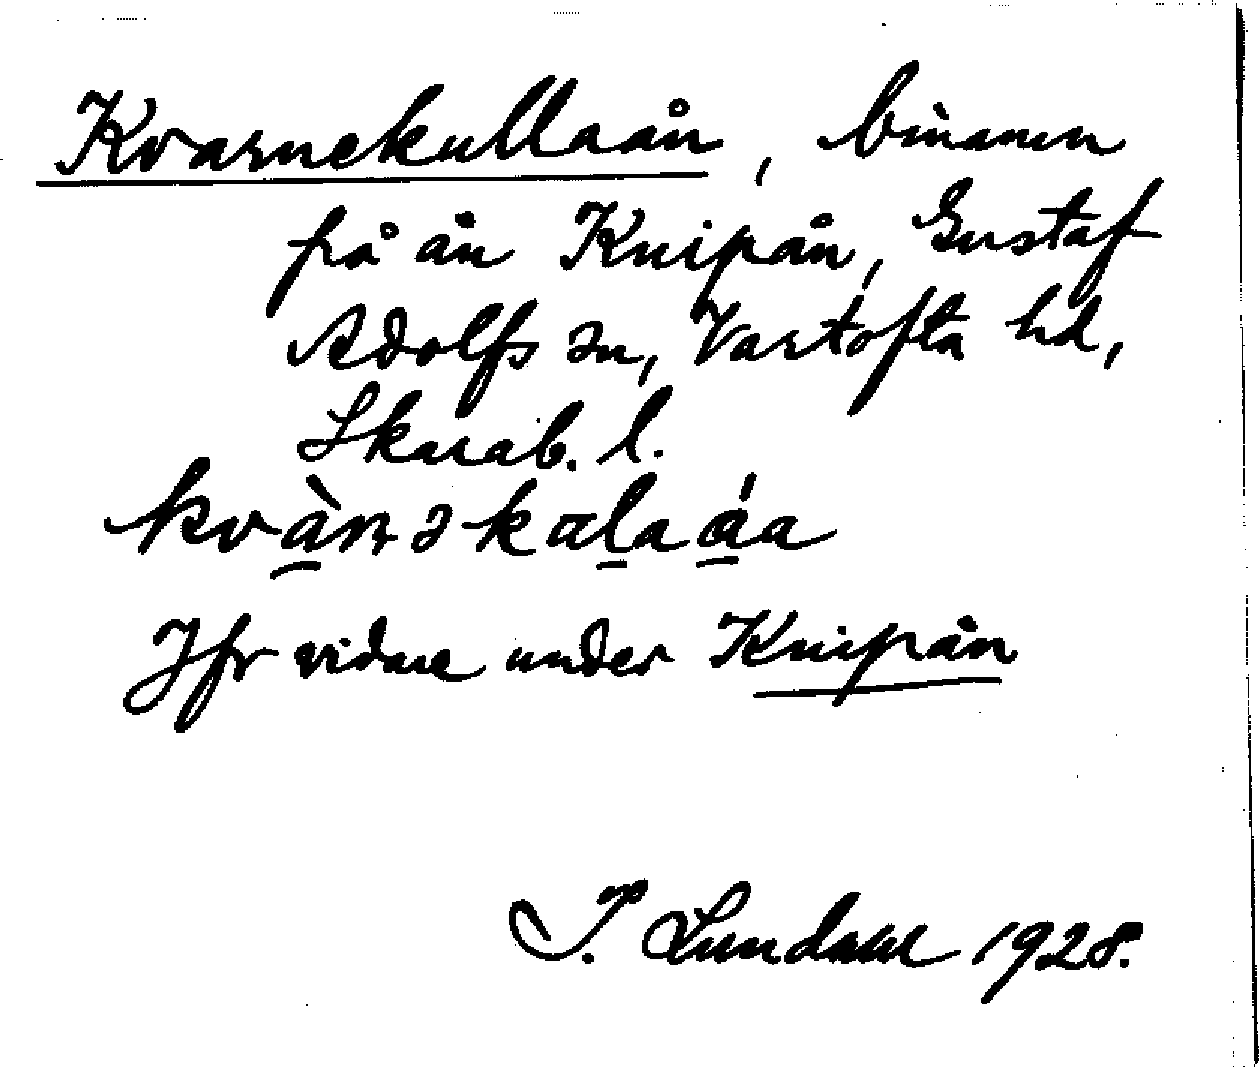 Kvarnekullaån, binamn
på ån Knipån, Gustaf
Adolfs sn, Vartofta hd,
Skarab. l.
kvà̱nəkalaáa
Jfr vidare under Knipån
I. Lundahl 1928.